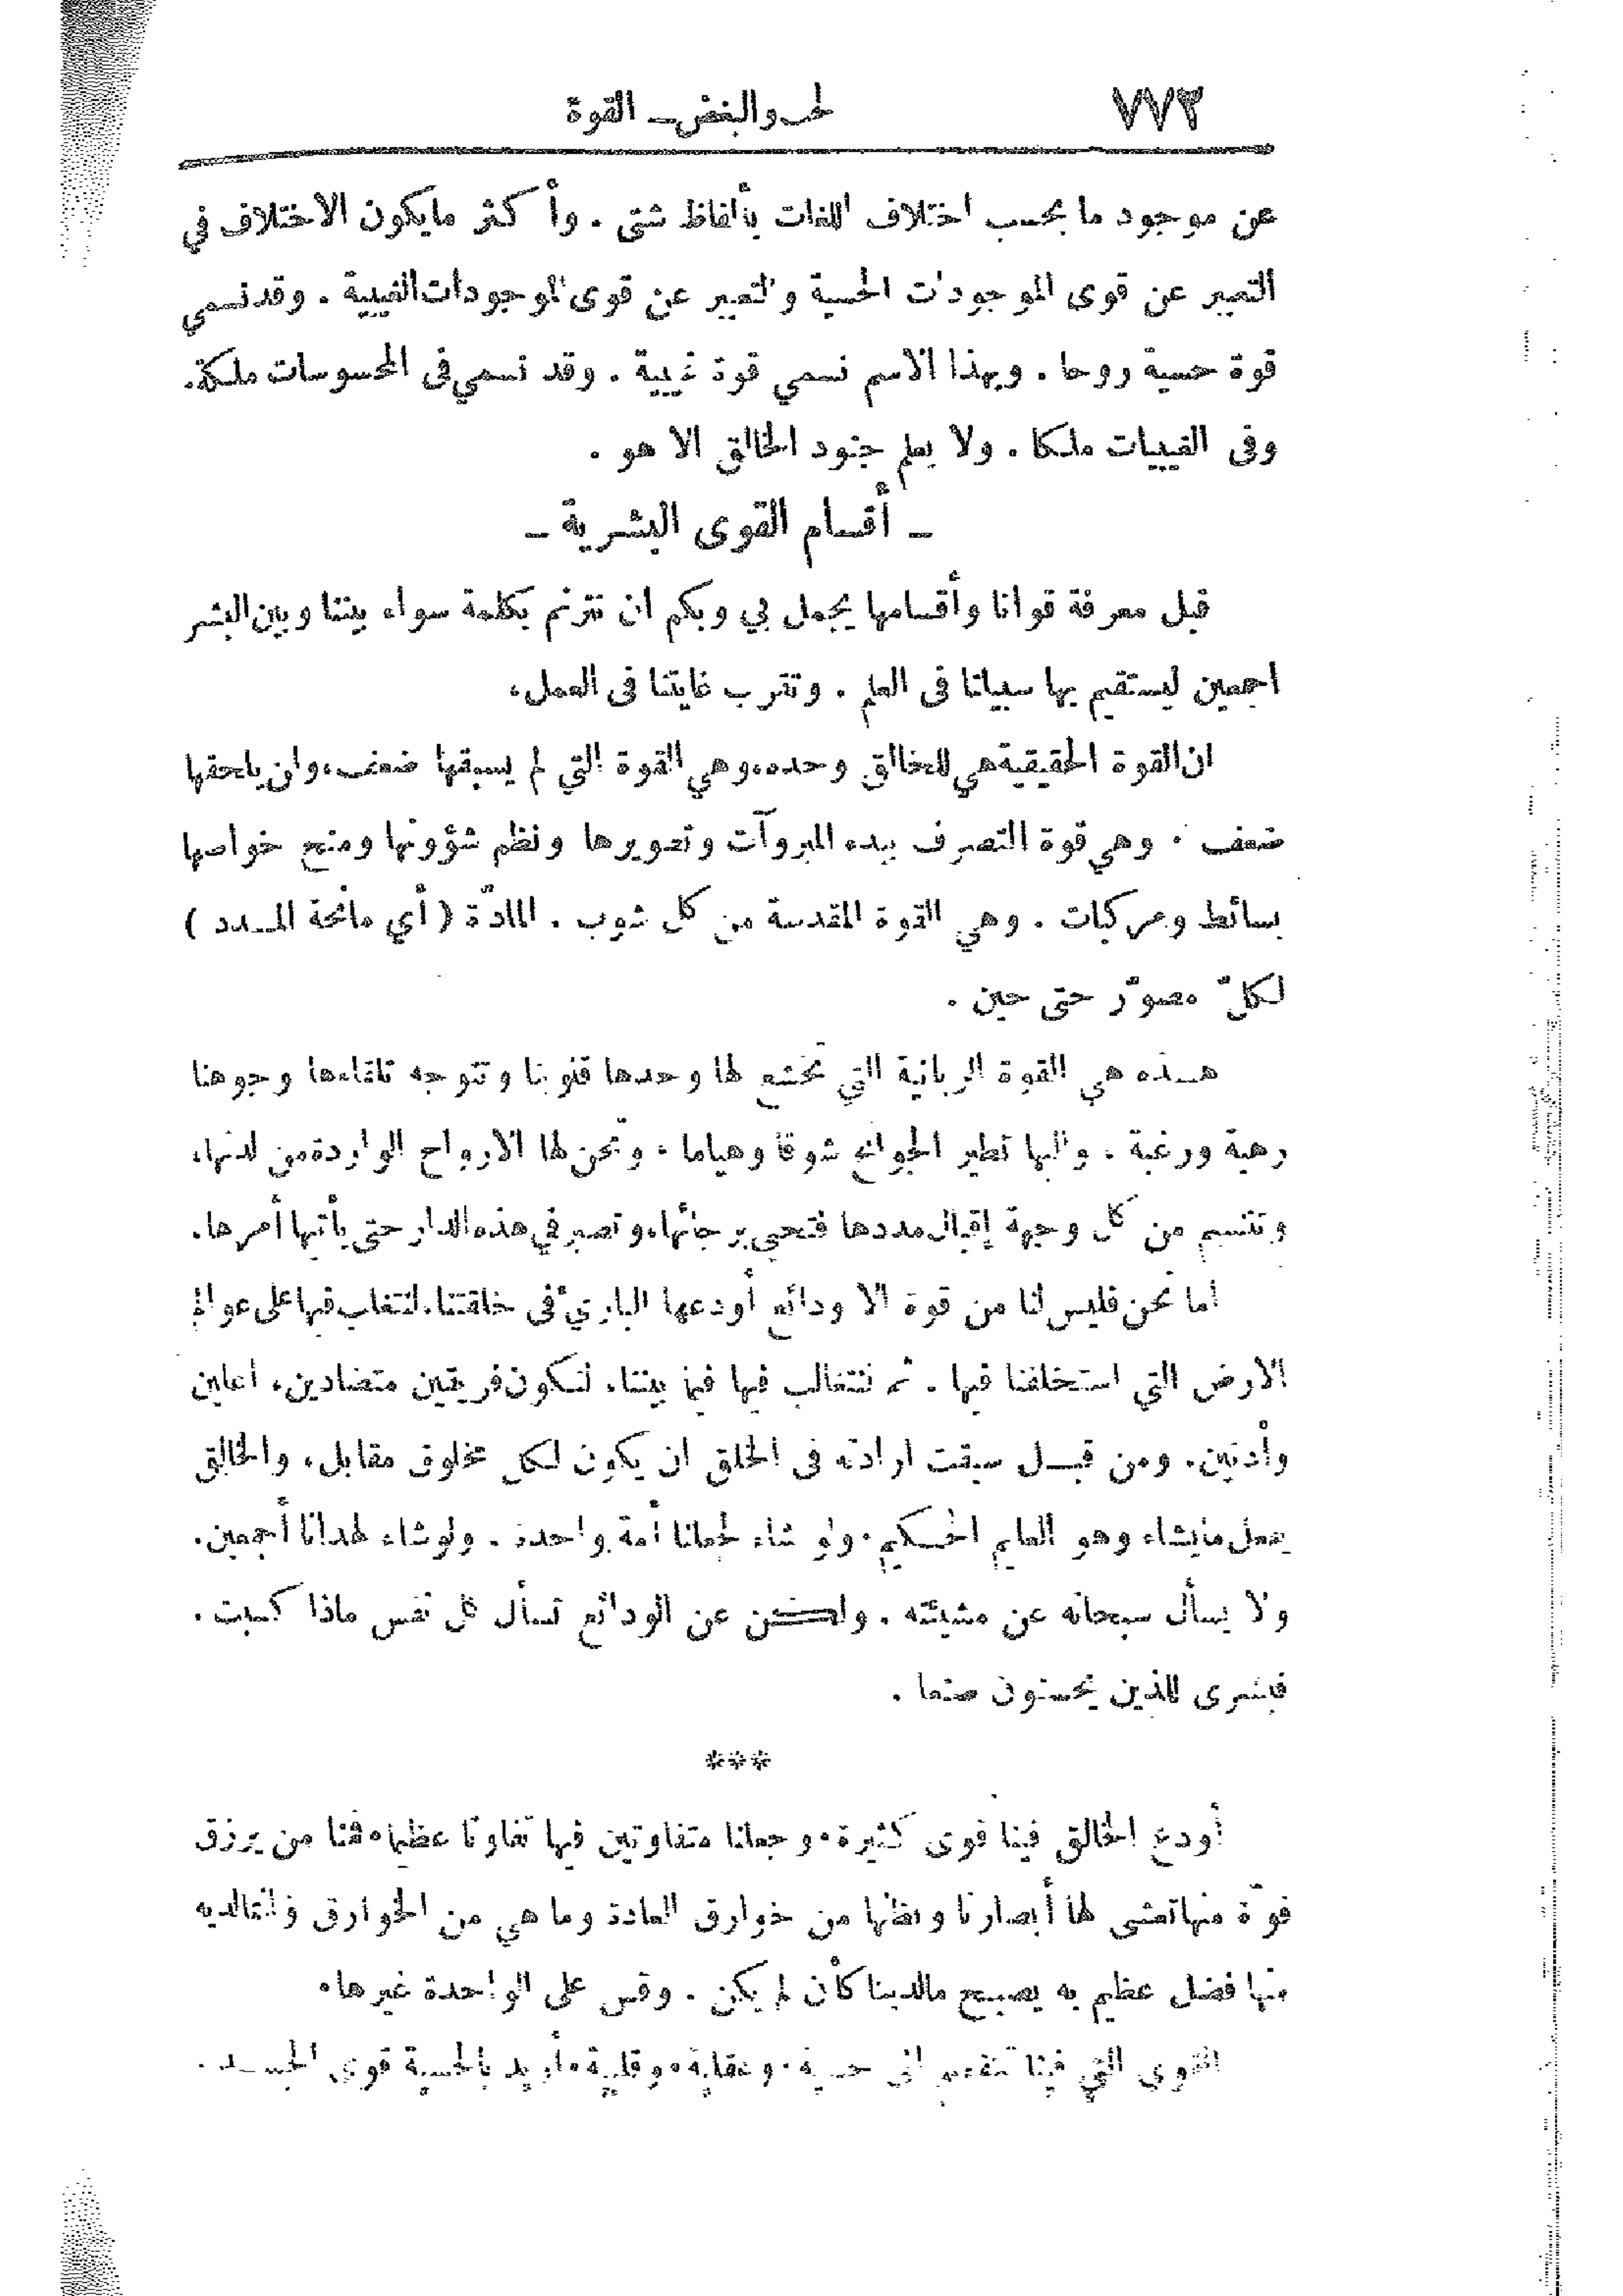 ٧٧٢ الحب والبغض ـ القوة
عن موجود ما بحسب اختلاف اللغات بألفاظ شتى . وأكثر مايكون الاختلاف في
التعبير عن قوى الموجودات الحسية والتعبير عن قوى الموجودات الغيبية . وقد نسمي
قوة حسية روحا . وبهذا الاسم نسمي قوة غيبية . وقد نسمي في المحسوسات ملكة.
وفى الغيبيات ملكا . ولا يعلم جنود الخالق الا هو .
ـ أقسام القوى البشرية ـ
قبل معرفة قوانا وأقسامها يجمل بي وبكم ان نترنم بكلمة سواء بيننا وبين البشر
اجمعين ليستقيم بها سبيلنا فى العلم . وتقرب غايتنا فى العمل.
ان القوة الحقيقية هي للخالق وحده، وهي القوة التي لم يسبقها ضعف، ولن يلحقها
ضعف . وهي قوة التصرف ببدء المبروآت وتصويرها ونظم شؤونها ومنح خواصها
بسائط ومركبات . وهي القوة المقدسة من كل شوب . المادّة ( أي مانحة المدد )
لكلّ مصوّر حتى حين .
هذه هي القوة الربانية التي تخشع لها وحدها قلوبنا وتتوجه تلقاءها وجوهنا
رهبة ورغبة . واليها تطير الجوانح شوقا وهياما . وتحن لها الارواح الواردة من لدنها،
وتتنسم من كل وجهة إقبال مددها فتحيى برجائها، وتصبر في هذه الدار حتى يأتيها أمرها.
اما نحن فليس لنا من قوة الا ودائع أودعها البارئ فى خلقتنا، لنتغلب فيها على عوالم
الارض التي استخلفنا فيها . ثم نتغالب فيها فيما بيننا، لنكون فريقين متضادين، اعلين
وأدنين. ومن قبل سبقت ارادته فى الخلق ان يكون لكل مخلوق مقابل، والخالق
يفعل مايشاء وهو العليم الحكيم. ولو شاء لجعلنا أمة واحدة . ولوشاء لهدانا أجمعين.
ولا يسأل سبحانه عن مشيئته . ولكن عن الودائع تسأل كل نفس ماذا كسبت .
فبشرى للذين يحسنون صنعا .
***
أودع الخالق فينا قوى كثيرة، وجعلنا متفاوتين فيها تفاوتا عظيما، فمنا من يرزق
قوّة منها تعشى لها أبصارنا ونظنها من خوارق العادة وما هي من الخوارق
منها فضل عظيم به يصبح مالدينا كأن لم يكن . وقس على الواحدة غيرها.
القوى التي فينا تنقسم الى حسية، وعقلية، وقلبية، أريد بالحسية قوى الجسد.